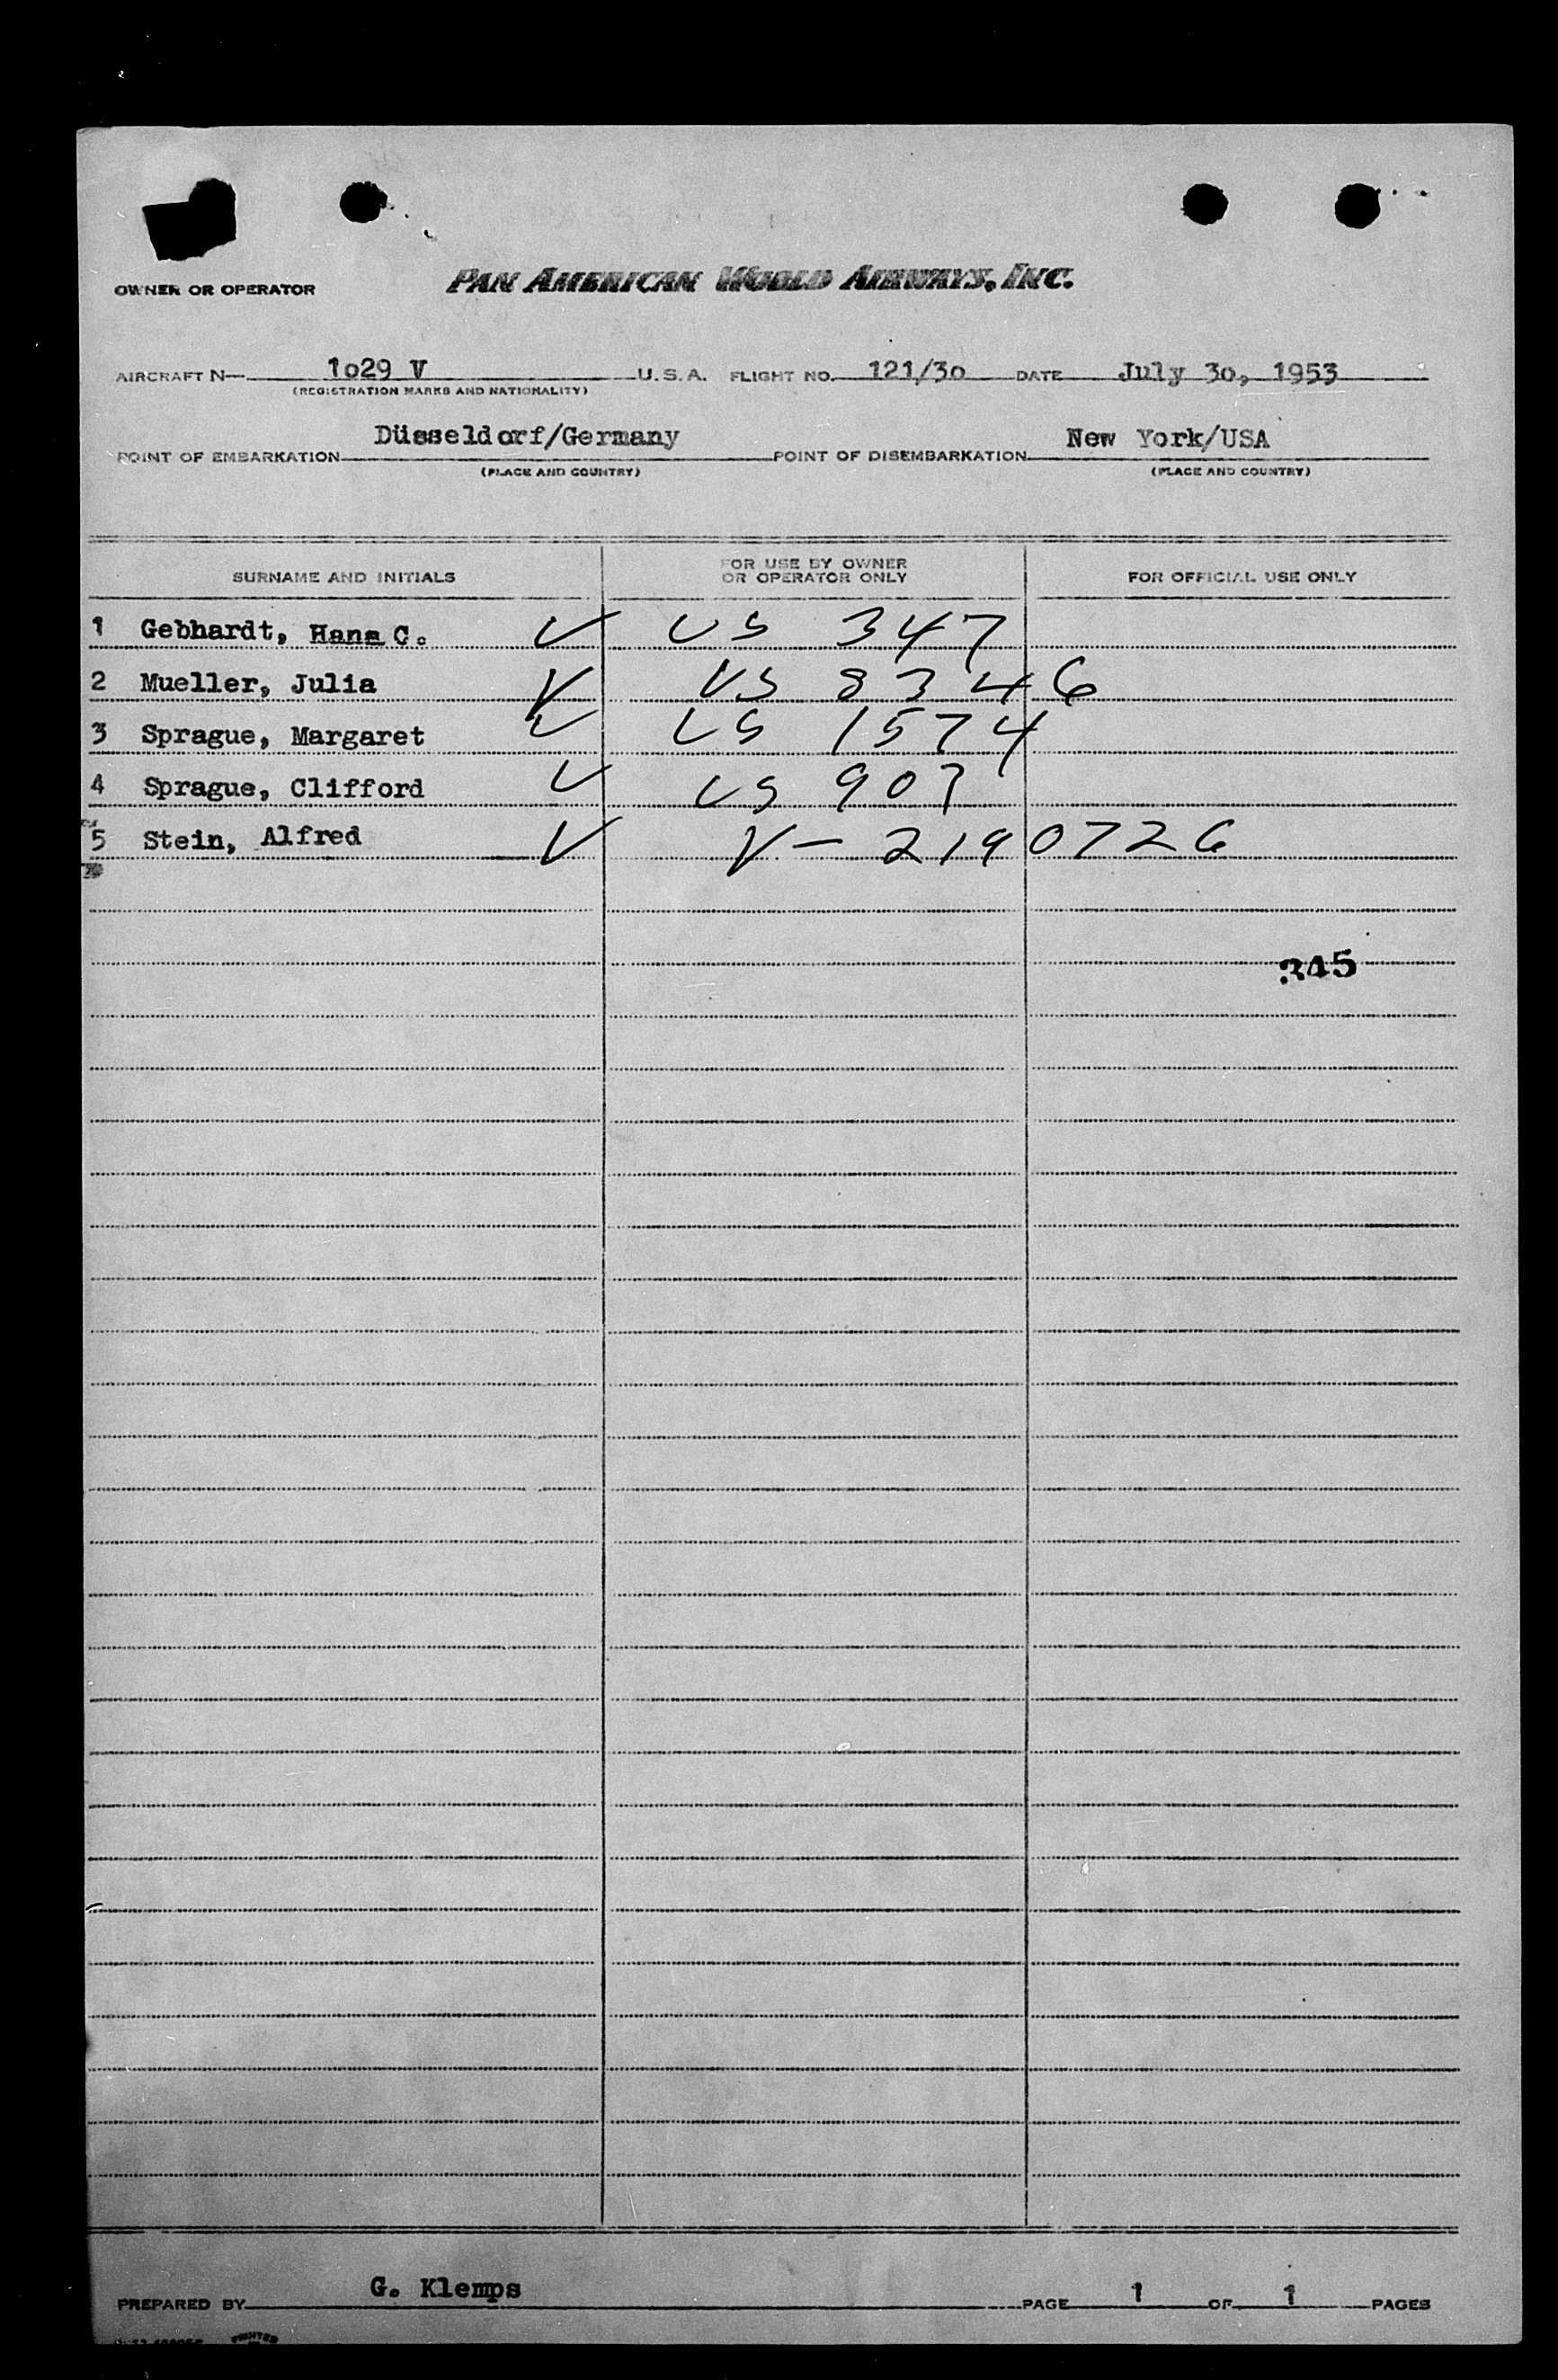 OWNER OR OPERATOR PAN AMERICAN WORLD AIRWAYS, INC.
AIRCRAFT N— 1o29 V U.S.A. FLIGHT NO. 121/3o DATE July 3o, 1953
(REGISTRATION MARKS AND NATIONALITY)
POINT OF EMBARKATION Düsseldorf/Germany POINT OF DISEMBARKATION New York/USA
(PLACE AND COUNTRY) (PLACE AND COUNTRY)
SURNAME AND INITIALS FOR USE BY OWNER OR OPERATOR ONLY FOR OFFICIAL USE ONLY
1 Gebhardt, Hans C. V US 347
2 Mueller, Julia V US 8346
3 Sprague, Margaret V US 1574
4 Sprague, Clifford V US 907
5 Stein, Alfred V V-2190726
345
PREPARED BY G. Klemps PAGE 1 OF 1 PAGES
PRINTED